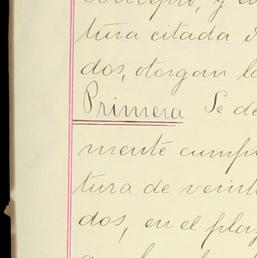 concepto, y en
tura citada
dos, otorgan la
Primera Se de
mente cumpl
tura de veinti
dos, en el pla